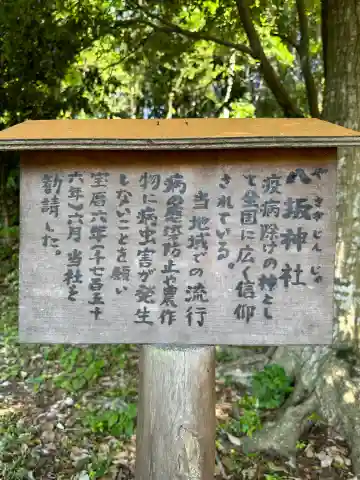 八坂神社
やさかじんじゃ
疫病除けの神とし
て全国に広く信仰
されている。
当地域での流行
病蔓延防止や農作
物に病虫害が発生
しないことを願い
宝暦六年(一七五
六年)六月当社を
勧請した。